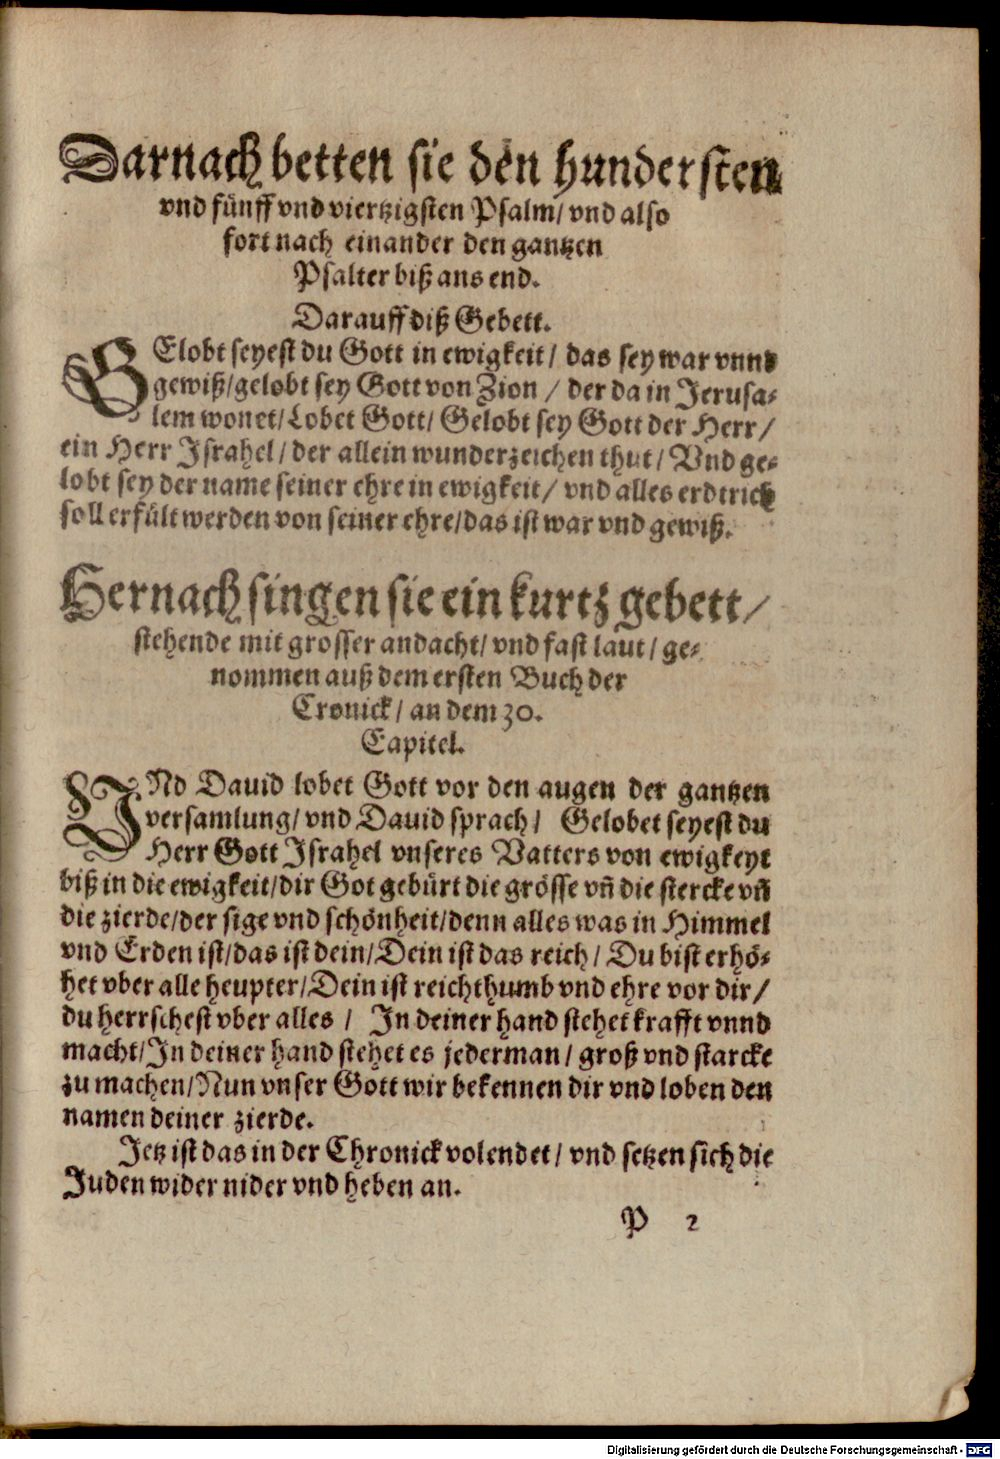 Darnach betten sie den hundersten
vnd fünff vnd viertzigsten Psalm/ vnd also
fort nach einander den gantzen
Psalter biß ans end.
Darauff diß Gebett.
GElobt seyest du Gott in ewigkeit/ das sey war vnnd
gewiß/gelobt sey Gott von Zion / der da in Jerusa⸗
lem wonet/Lobet Gott/ Gelobt sey Gott der Herr/
ein Herr Israhel/ der allein wunderzeichen thut/ Vnd ge⸗
lobt sey der name seiner ehre in ewigkeit/ vnd alles erdtrich
soll erfült werden von seiner ehre/das ist war vnd gewiß.
Hernach singen sie ein kurtz gebett/
stehende mit grosser andacht/ vnd fast laut/ ge⸗
nommen auß dem ersten Buch der
Cronick/ an dem 30.
Capitel.
VNd Dauid lobet Gott vor den augen der gantzen
versamlung/ vnd Dauid sprach/ Gelobet seyest du
Herr Gott Israhel vnseres Vatters von ewigkeyt
biß in die ewigkeit/dir Got gebürt die grösse vñ die stercke vñ
die zierde/der sige vnd schönheit/denn alles was in Himmel
vnd Erden ist/das ist dein/Dein ist das reich/ Du bist erhö⸗
het vber alle heupter/Dein ist reichthumb vnd ehre vor dir/
du herrschest vber alles / In deiner hand stehet krafft vnnd
macht/In deiner hand stehet es jederman/ groß vnd starcke
zu machen/Nun vnser Gott wir bekennen dir vnd loben den
namen deiner zierde.
Jetz ist das in der Chronick volendet/ vnd setzen sich die
Juden wider nider vnd heben an.
P 2
Digitalisierung gefördert durch die Deutsche Forschungsgemeinschaft - DFG